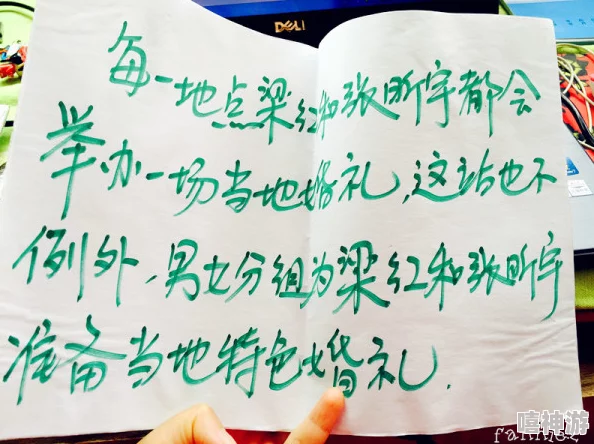 DELL
每一地点梁红和张昕宇都会
举办一场当地婚礼,这站也不
例外,男女分组为梁红和张昕宇
准备当地特色婚礼.
嘻神游